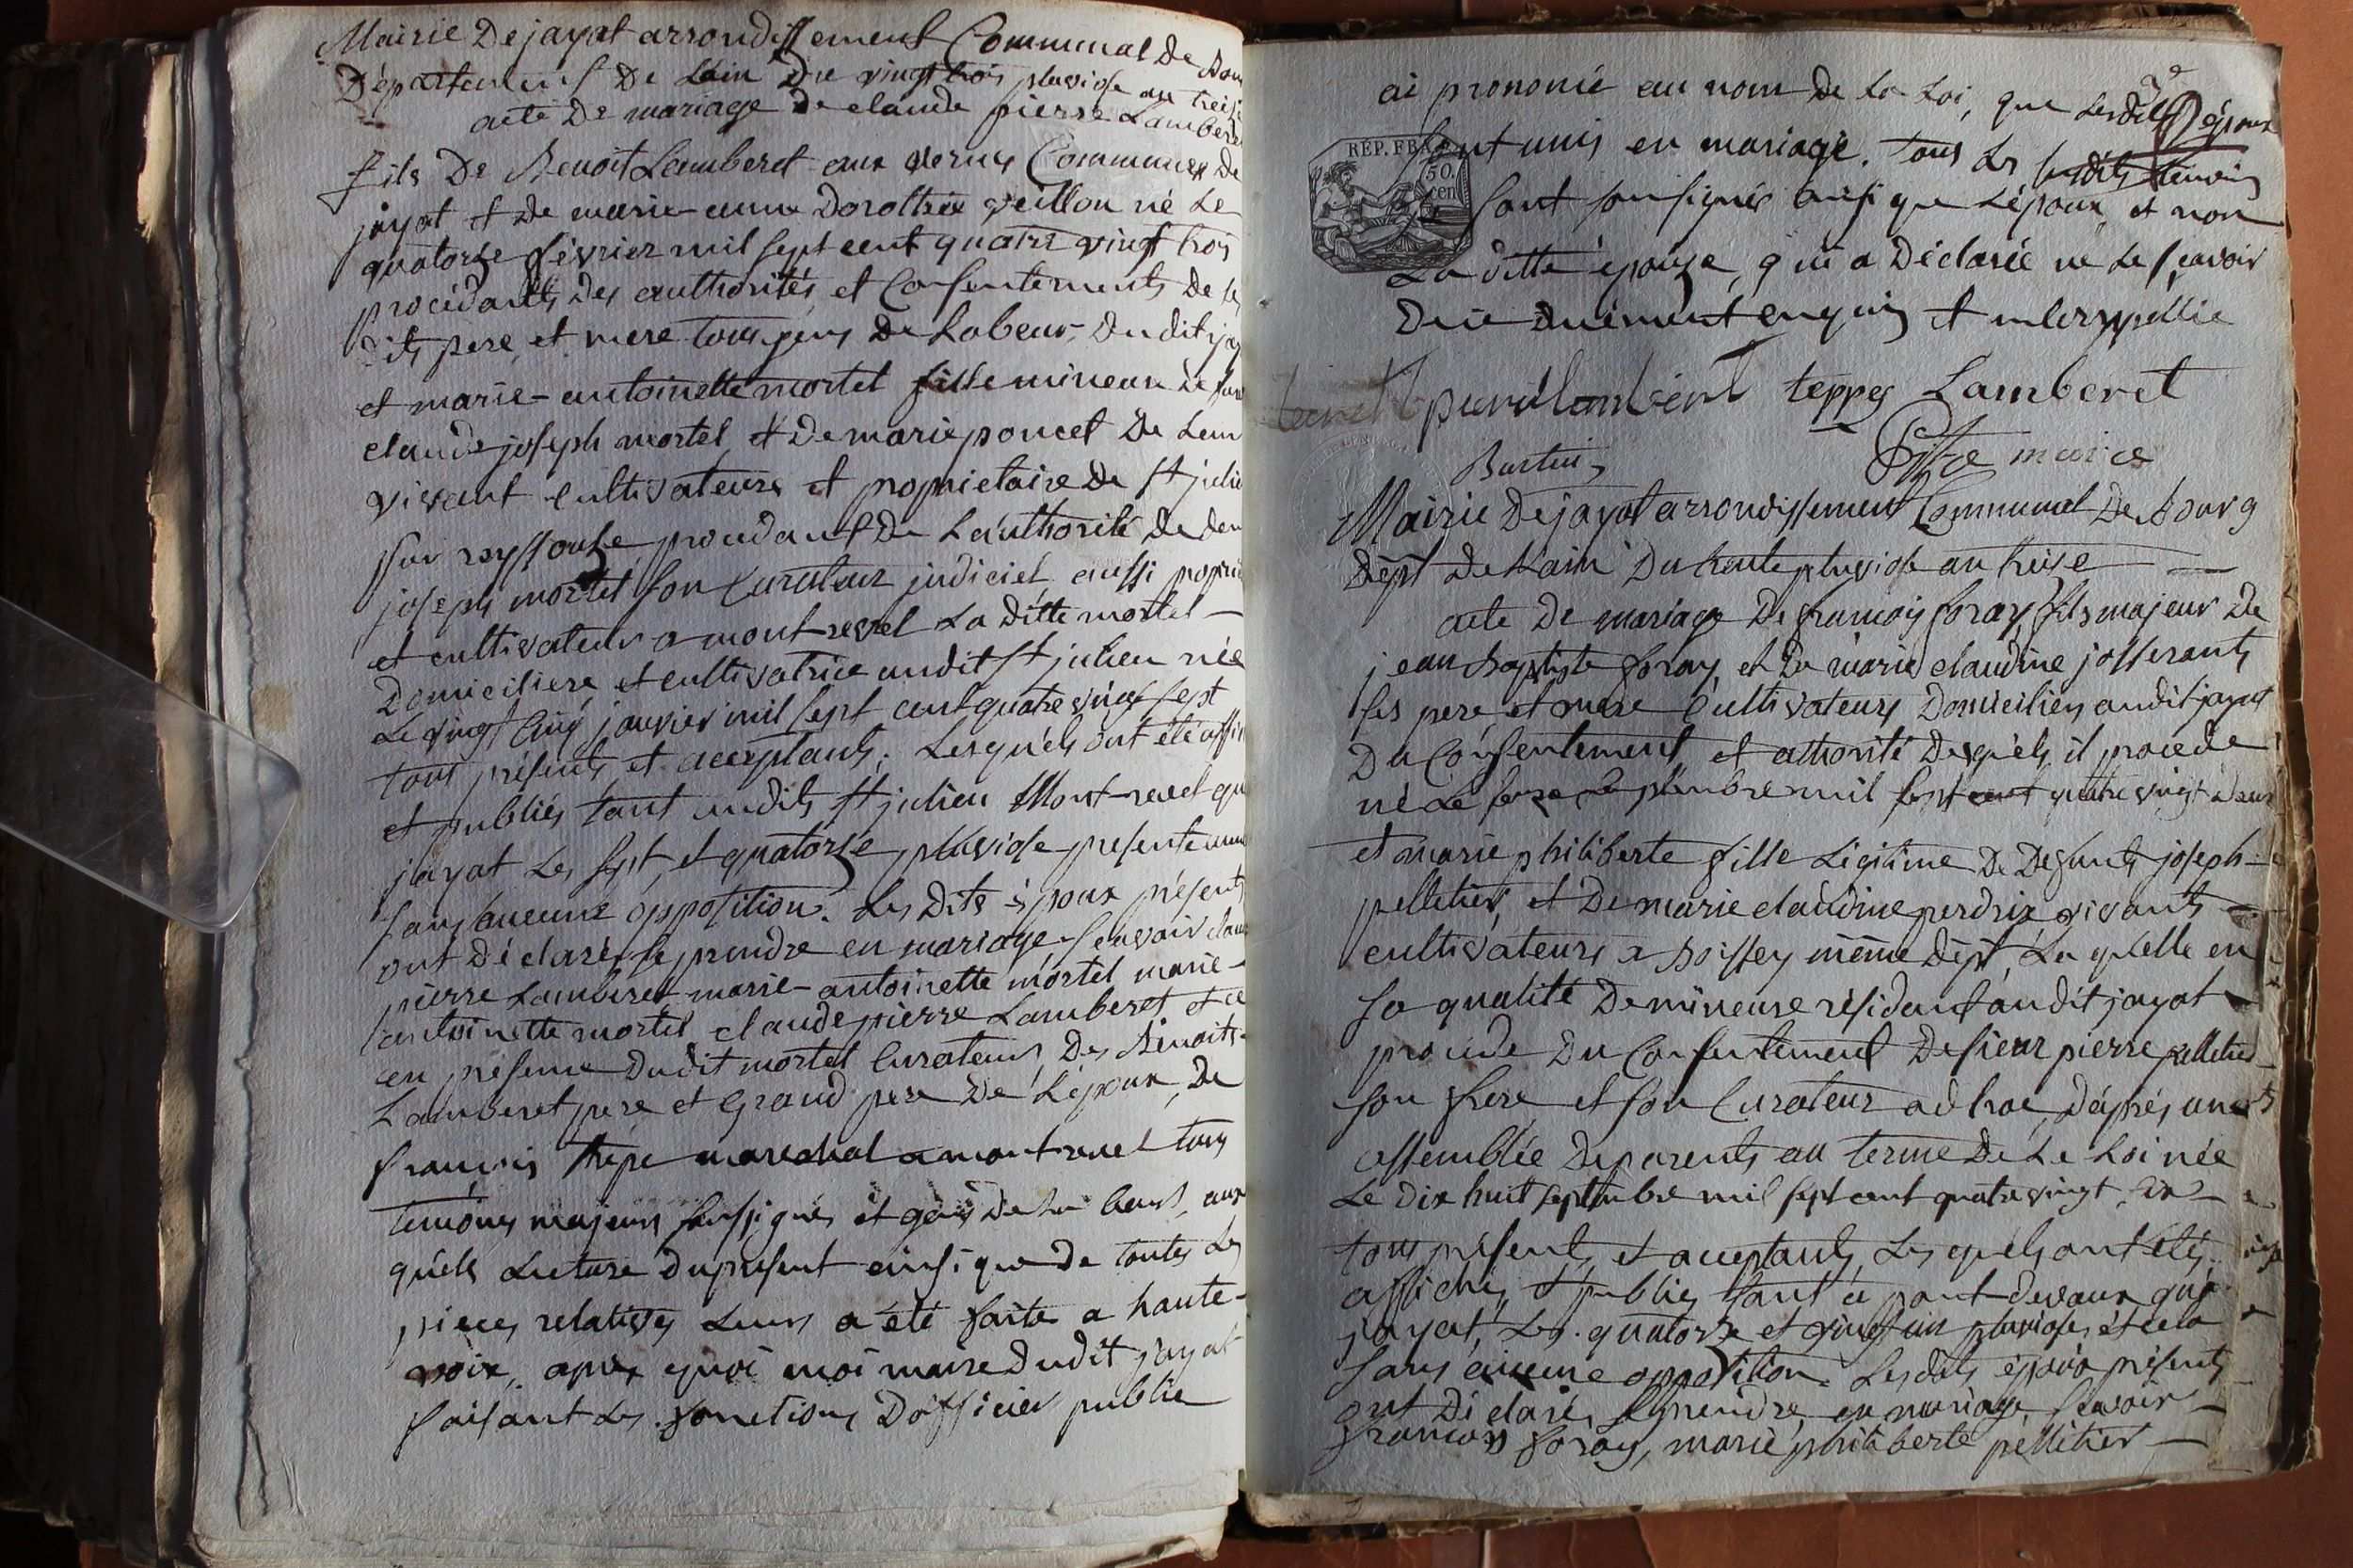 Mairie De jayat arrondissement Communal De Bour
Département De Lain Du vingt trois pluviose an treise
acte De mariage de claude pierre Lamberet
fils De Benoit Lamberet aux vernes Communes de
jayat et de marie anne Dorothée
quatorze février mil sept cent quatre vingt trois
procédants des authorités et Consentements De ses
dits pere et mere tous gens De Labeur Dudit jay
et marie-antoinette mortel fille mineure de
claude joseph mortel et De marie poncet De leur
vivant cultivateurs et proprietaire De St julien
sur reyssouze procedant De Lauthorité De
joseph mortel son Curateur judiciel aussi propri
et cultivateur a mont-revel La ditte mortel
Domiciliere et cultivatrice audit St julien née
Le vingt cinq janvier mil sept cent quatre vingt sept
tous présents et acceptants; Lesquels ont été affi
et publiés tant audits St julien Mont-revel qu
jayat Les sept et quatorze pluviose presente
sans aucune opposition. Les Dits époux présents
ont Déclarés se prendre en mariage scavoir clau
pierre Lamberet marie-antoinette mortel marie-
antoinette mortel claude pierre Lamberet et ce
en présence Dudit mortel Curateur, Des Benoits
Lamberet pere et Grand pere De L'époux, De
françois mareschal a mont-revel tous
temoins majeurs soussignés et gens de La beur, aux
quels Lecture du present ainsi que De toutes Les
pieces relatives Leurs a été faite a haute-
voix, apres quoi moi maire Dudit jayat
faisant Les fonctions D'officier public
ai prononcé au nom De La Loi, que Lesdits époux
RÉP. FRA
50.
cen
sont unis en mariage. tous Les susdits témoins
sont soussignés ainsi que L'époux et non
La ditte épouze, qui a Déclarée ne Le scavoir
De ce duement enquis et interpellée
lamberet teppes Lamberet
Burtin
maire
Mairie De jayat arrondissement Communal De Bourg
Dépt De L'ain Du trente pluviose an treise
acte De mariage De francois foray fils majeur De
jean Baptiste foray, et De marie claudine josserants
ses pere et mere Cultivateurs Domiciliés audit jayat
Du Consentement et athorité Desquels il procede
né Le seize septembre mil sept cent quatre vingt Deux
et marie philiberte fille Légitime De Defunts joseph
pelletier, et De marie claudine perdrix vivants
cultivateurs a Boissey même Dépt, La quelle en
sa qualité De mineure résidant audit jayat
procede Du Consentement De sieur pierre pelletier
son frere et son Curateur ad hoc, D'après une
assemblée De parents au terme De Le Loi née
Le dix huit septembre mil sept cent quatre vingt six
tous présents et acceptants, Les quels ont étés
affichés et publiés tant à pont-devaux qu'à
jayat, Les quatorze et vingt un pluviose, et cela
sans aucune opposition. Les dits époux présents
ont Déclarés se prendre en mariage, scavoir
francois foray, marie philiberte pelletier